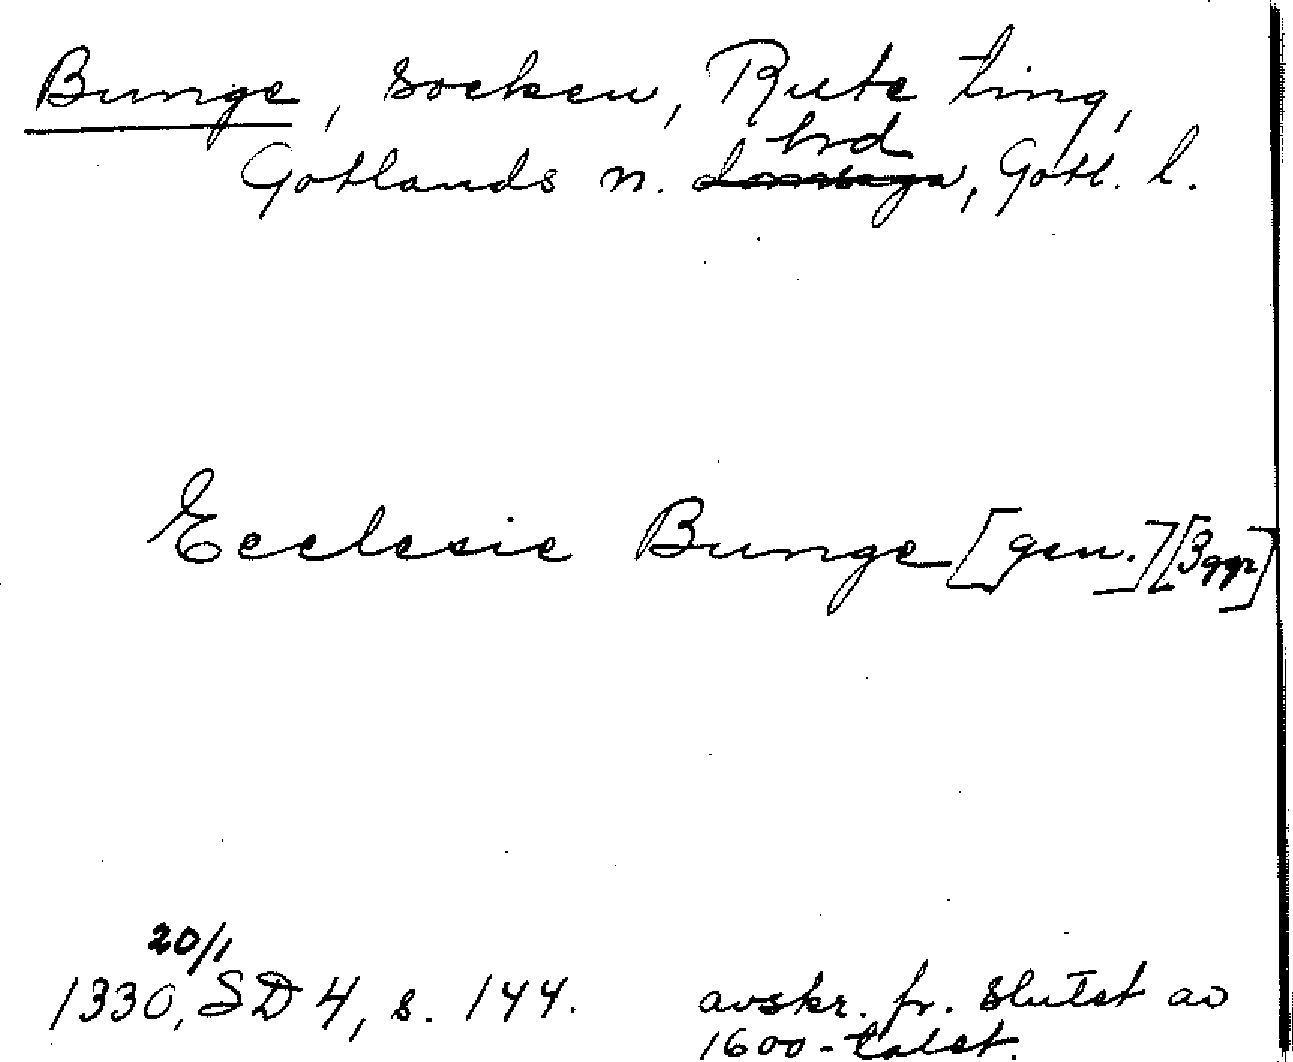 Bunge, socken, Rute ting,
hrd
Gotlands n. domsaga, Gotl. l.
Ecclesie Bunge [gen.] [3 ggr]
20/1
1330, SD 4, s. 144. avskr. fr. slutet av
1600-talet.